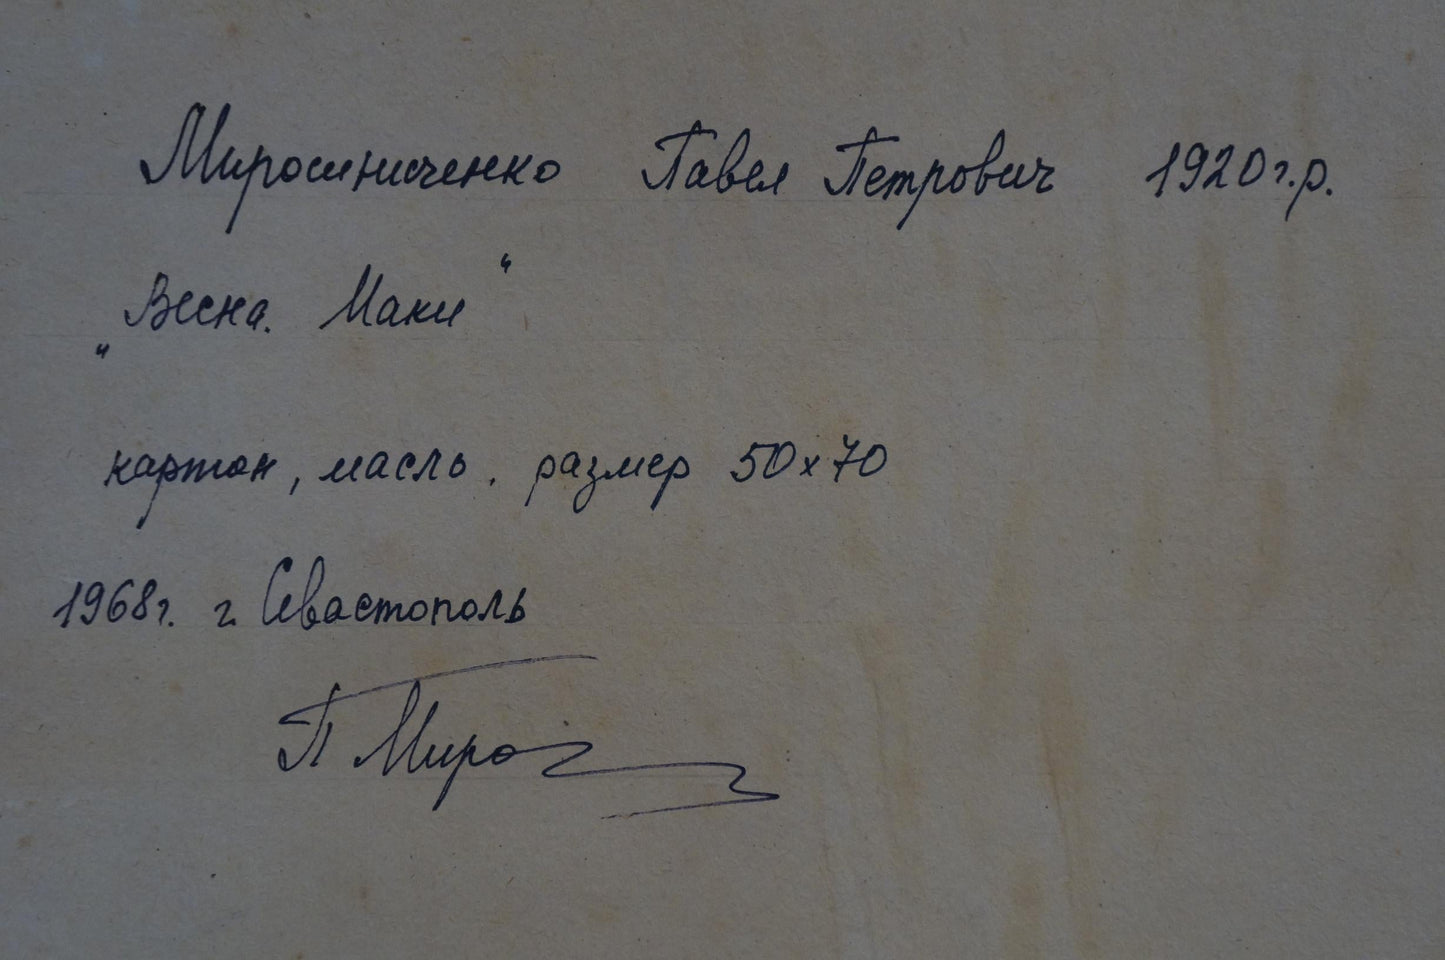 Мирошниченко Павел Петрович 1920 г.р.
„Весна. Маки“
картон, масль. размер 50х70
1968г. г. Севастополь
П Миро